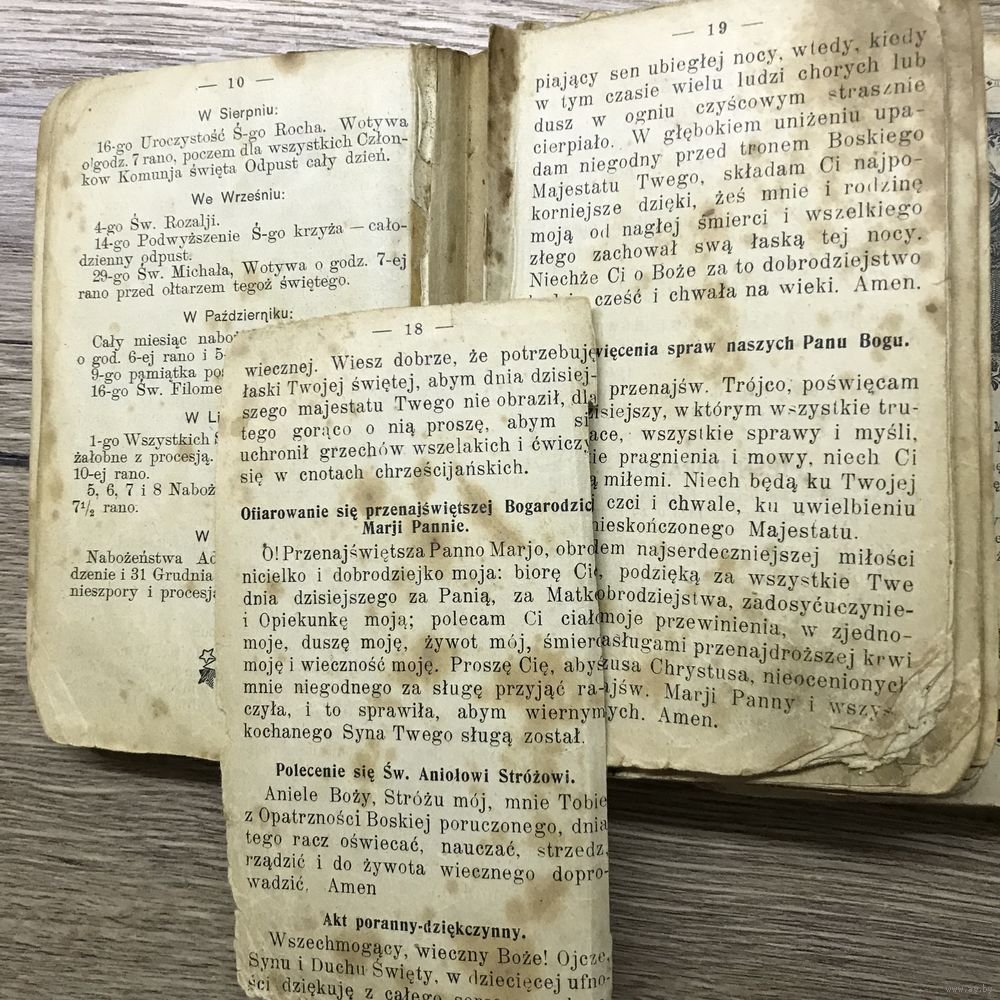 — 10 —
W Sierpniu:
16-go Uroczystość Ś-go Rocha. Wotywa
o godz. 7 rano, poczem dla wszystkich Człon-
kow Komunja święta Odpust cały dzień.
We Wrześniu:
4-go Św. Rozalji.
14-go Podwyższenie Ś-go krzyża — cało-
dzienny odpust.
29-go Św. Michała, Wotywa o godz. 7-ej
rano przed ołtarzem tegoż świętego.
W Październiku:
Cały miesiąc
o god. 6-ej rano i 5-
9-go pamiątka
16-go Św. Filome
W Li
1-go Wszystkich
żałobne z procesją.
10-ej rano.
5, 6, 7 i 8 Naboż
7½ rano.
W
Nabożeństwa Ad
dzenie i 31 Grudnia
nieszpory i procesją
— 18 —
wiecznej. Wiesz dobrze, że potrzebuję
łaski Twojej świętej, abym dnia dzisiej-
szego majestatu Twego nie obraził, dla
tego gorąco o nią proszę, abym si
uchronił grzechów wszelakich i ćwiczy
się w cnotach chrześcijańskich.
Ofiarowanie się przenajświętszej Bogarodzic
Marji Pannie.
O! Przenajświętsza Panno Marjo, obro
nicielko i dobrodziejko moja: biorę Cię
dnia dzisiejszego za Panią, za Matkę
i Opiekunkę moją; polecam Ci ciało
moje, duszę moję, żywot mój, śmierć
moję i wieczność moję. Proszę Cię, abyś
mnie niegodnego za sługę przyjąć ra-
czyła, i to sprawiła, abym wiernym
kochanego Syna Twego sługą został.
Polecenie się Św. Aniołowi Stróżowi.
Aniele Boży, Stróżu mój, mnie Tobie
z Opatrzności Boskiej poruczonego, dnia
tego racz oświecać, nauczać, strzedz,
rządzić i do żywota wiecznego dopro-
wadzić. Amen
Akt poranny-dziękczynny.
Wszechmogący, wieczny Boże! Ojcze,
Synu i Duchu Święty, w dziecięcej ufno-
ści dziękuję z całego
— 19 —
piający sen ubiegłej nocy, wtedy, kiedy
w tym czasie wielu ludzi chorych lub
dusz w ogniu czyścowym strasznie
cierpiało. W głębokiem uniżeniu upa-
dam niegodny przed tronem Boskiego
Majestatu Twego, składam Ci najpo-
korniejsze dzięki, żeś mnie i rodzinę
moją od nagłej śmierci i wszelkiego
złego zachował swą łaską tej nocy.
Niechże Ci o Boże za to dobrodziejstwo
cześć i chwała na wieki. Amen.
więcenia spraw naszych Panu Bogu.
przenajśw. Trójco, poświęcam
isiejszy, w którym wszystkie tru-
ace, wszystkie sprawy i myśli,
ie pragnienia i mowy, niech Ci
ą miłemi. Niech będą ku Twojej
czci i chwale, ku uwielbieniu
nieskończonego Majestatu.
em najserdeczniejszej miłości
, podzięką za wszystkie Twe
obrodziejstwa, zadosyćuczynie-
moje przewinienia, w zjedno-
asługami przenajdroższej krwi
zusa Chrystusa, nieocenionych
ajśw. Marji Panny i wszys-
ych. Amen.
www.ay.by